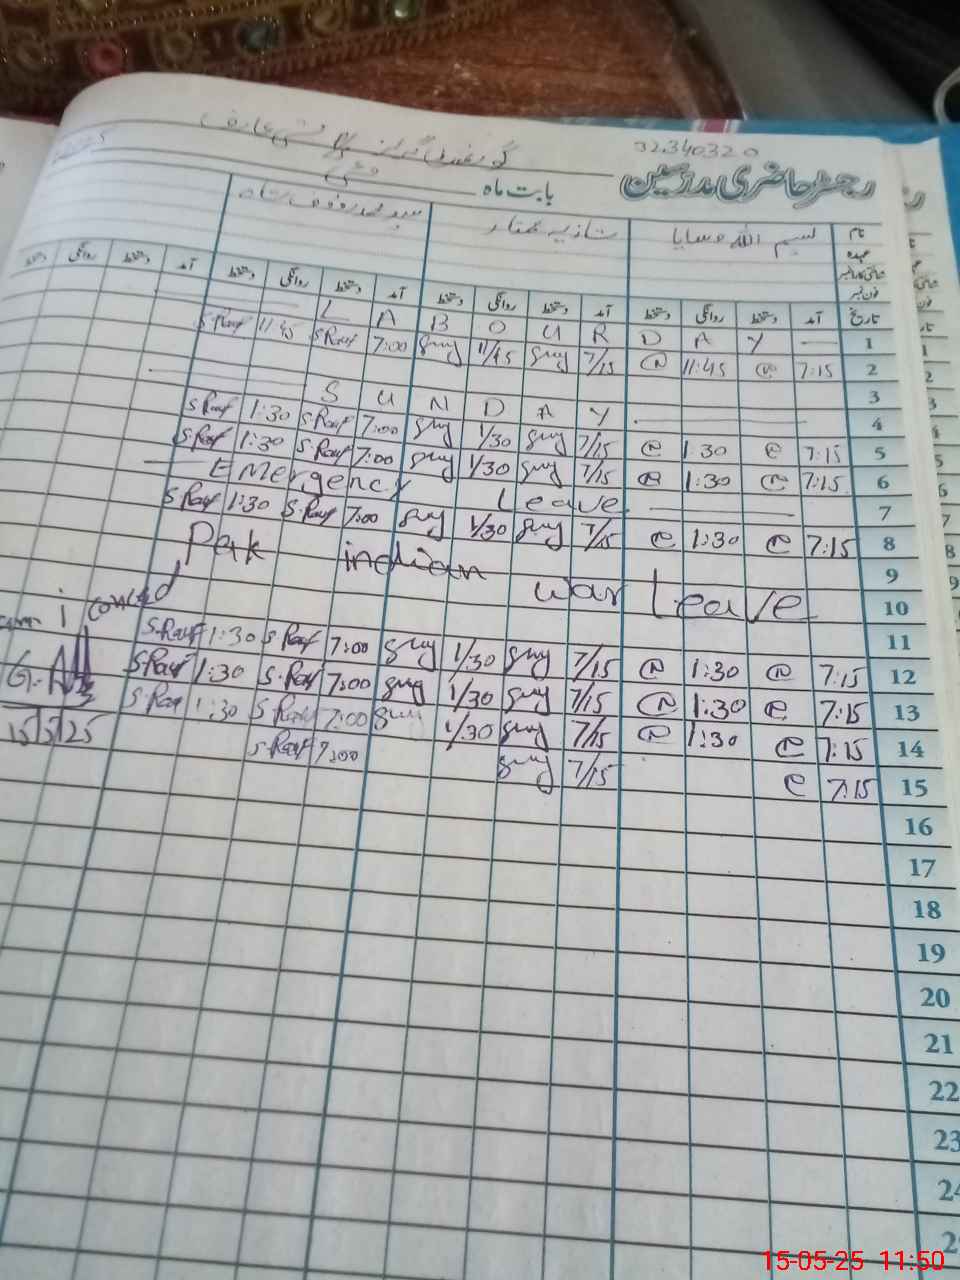 32340320
رجسٹر حاضری مدرسین
بابت ماہ مئی
نام بسم اللہ وسایا شازیہ مختار سید محمد رؤف شاہ
عہدہ
شناختی کارڈ نمبر
فون نمبر
تاریخ آمد دستخط روانگی دستخط آمد دستخط روانگی دستخط آمد دستخط روانگی دستخط آمد دستخط روانگی دستخط
L A B O U R D A Y 1
S.Rauf 11:45 S.Rauf 7:00 11/45 7/15 11:45 7:15 2
3
S U N D A Y 4
S.Rauf 1:30 S.Rauf 7:00 1/30 7/15 1:30 7:15 5
S.Rauf 1:30 S.Rauf 7:00 1/30 7/15 1:30 7:15 6
Emergency Leave 7
S.Rauf 1:30 S.Rauf 7:00 1/30 7/15 1:30 7:15 8
9
Pak indian war Leave 10
11
S.Rauf 1:30 S.Rauf 7:00 1/30 7/15 1:30 7:15 12
S.Rauf 1:30 S.Rauf 7:00 1/30 7/15 1:30 7:15 13
S.Rauf 1:30 S.Rauf 7:00 1/30 7/15 1:30 7:15 14
15/5/25
S.Rauf 7:00 7/15 7:15 15
16
17
18
19
20
21
22
23
24
15-05-25 11:50